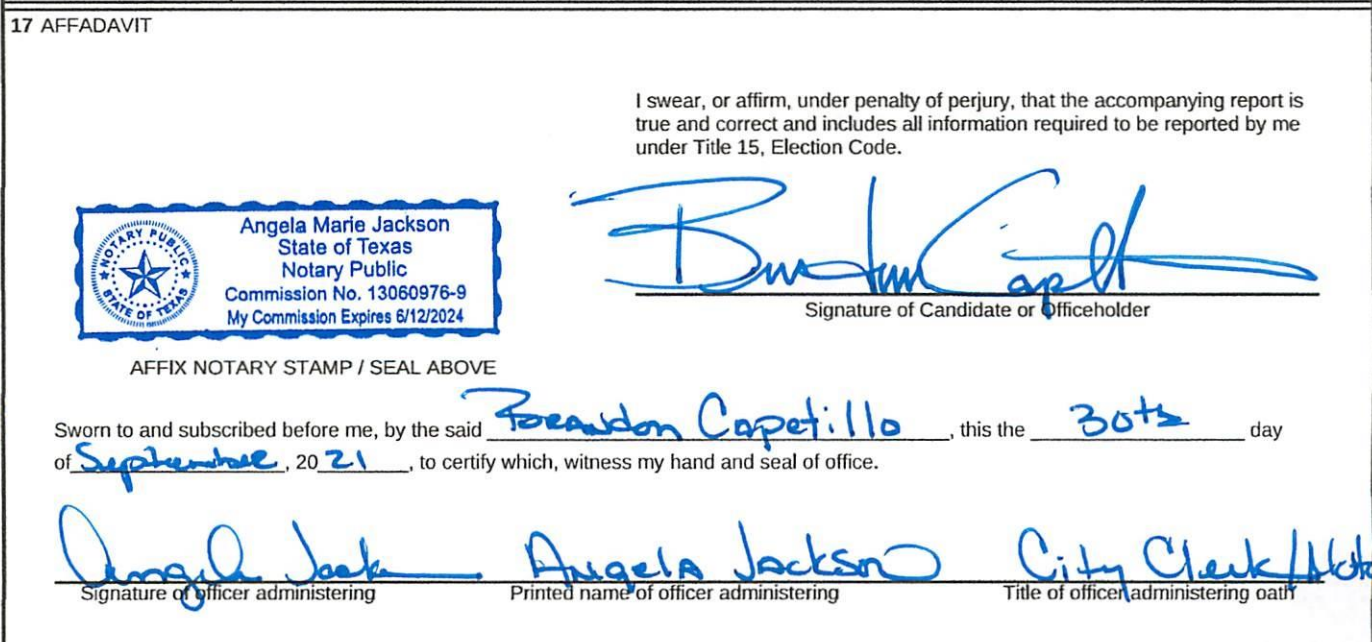 17 AFFADAVIT
I swear, or affirm, under penalty of perjury, that the accompanying report is
true and correct and includes all information required to be reported by me
under Title 15, Election Code.
NOTARY PUBLIC
STATE OF TEXAS
Angela Marie Jackson
State of Texas
Notary Public
Commission No. 13060976-9
My Commission Expires 6/12/2024
Brandon Capetillo
Signature of Candidate or Officeholder
AFFIX NOTARY STAMP / SEAL ABOVE
Sworn to and subscribed before me, by the said Brandon Capetillo, this the 30th day
of September, 20 21, to certify which, witness my hand and seal of office.
Angela Jackson Angela Jackson City Clerk/
Signature of officer administering Printed name of officer administering Title of officer administering oath